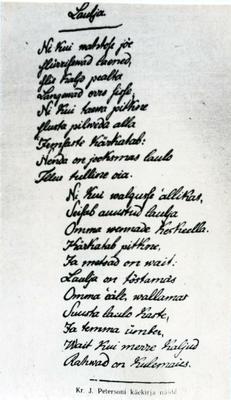 Laulja.
Ni kui mahtofe jöe
flürrisewad laened,
flis kaljo pealta
Langewad orro sisse,
Ni kui taewa pitkne
flusta pilwede alla
Firmaste kärkatab:
Nenda on jooksmas laulo
Illus tulline oia.
Ni kui walgusse allikas,
Seisab auustud laulja
Omma wennade keskella.
Kärkatab pitkne,
Ja metsad on wait:
Laulja on töstamas
Omma äält, wallamas
Suusta laulo kaste,
Ja temma ümber,
Wait kui merre kaljud
Rahwad on kulemas.
Kr. J. Petersoni käekirja näide